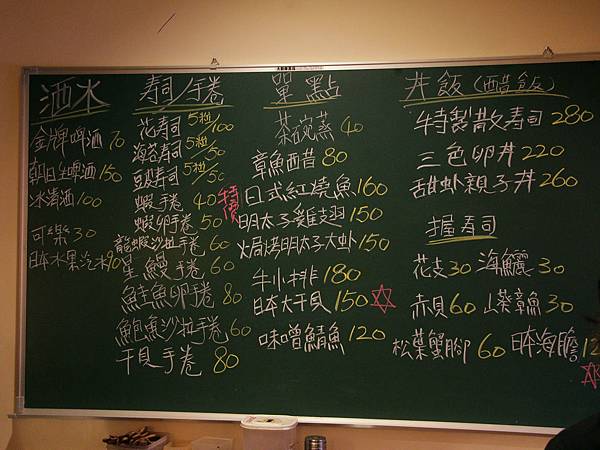 酒水
金牌啤酒 70
朝日生啤酒 150
冰清酒 100
可樂 30
日本水果汽水 90
寿司/手卷
花寿司 5粒/100
海苔寿司 5粒/50
豆皮寿司 5粒/50
蝦手卷 40 特價
蝦卵手卷 50
龍蝦沙拉手卷 60
星鰻手卷 60
鮭魚卵手卷 80
鮑魚沙拉手卷 60
干貝手卷 80
單點
茶碗蒸 40
章魚酉昔 80
日式紅燒魚 160
明太子雞翅 150
火局烤明太子大虾 150
牛小排 180
日本大干貝 150
味噌鯖魚 120
丼飯(醋飯)
特製散寿司 280
三色卵丼 220
甜虾親子丼 260
握寿司
花支 30 海鱺 30
赤貝 60 山葵章魚 30
松葉蟹腳 60 日本海膽